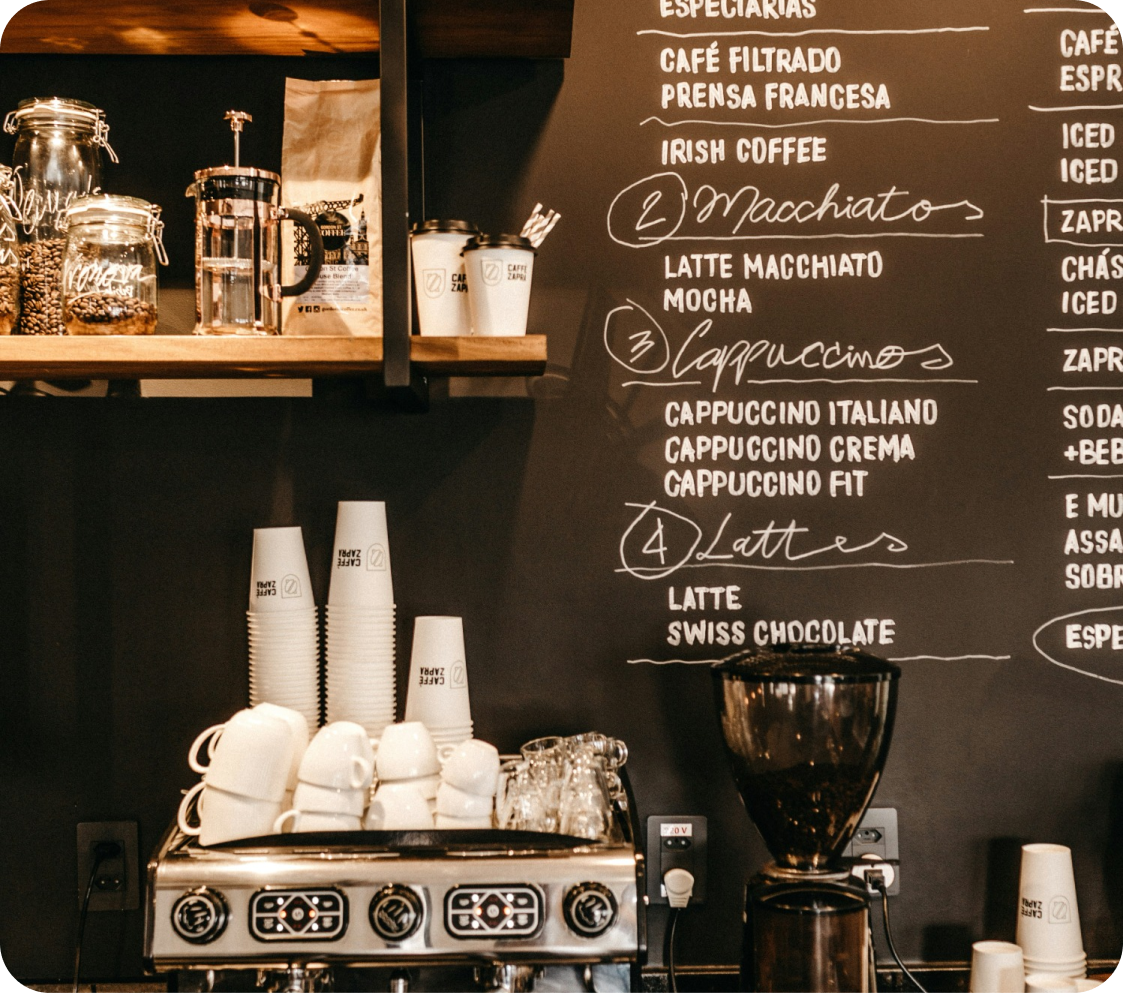 ESPECIARIAS
CAFÉ FILTRADO
PRENSA FRANCESA
IRISH COFFEE
2 Macchiatos
LATTE MACCHIATO
MOCHA
3 Cappuccinos
CAPPUCCINO ITALIANO
CAPPUCCINO CREMA
CAPPUCCINO FIT
4 Lattes
LATTE
SWISS CHOCOLATE
CAFÉ
ESPR
ICED
ICED
ZAPR
CHÁS
ICED
ZAPR
SODA
+BEB
E MU
ASSA
SOBR
ESPE
COFFEE
CAFFÈ
ZAPRA
CAFFÈ
ZAPRA
CAFFÈ
ZAPRA
CAFFÈ
ZAPRA
CAFFÈ
ZAPRA